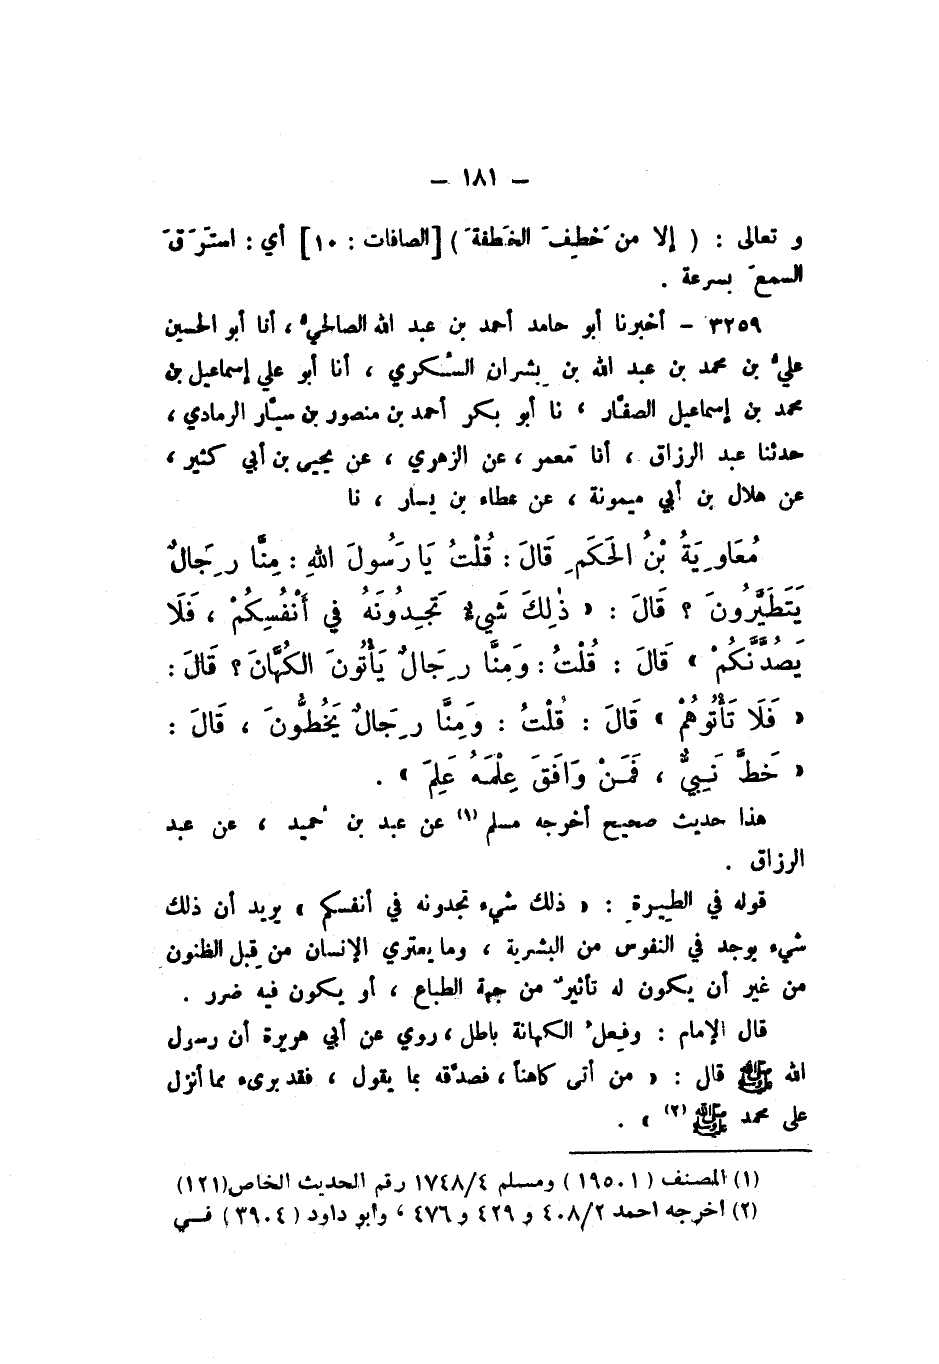 – ١٨١ –
و تعالى : ( إلا من خَطِفَ الخَطفَةَ ) [الصافات : ١٠] أي : استَرَقَ
السمعَ بسرعة .
٣٢٥٩ – أخبرنا أبو حامد أحمد بن عبد الله الصالحيُّ ، أنا أبو الحسين
عليُّ بن محمد بن عبد الله بن بِشران السُّكري ، أنا أبو علي إسماعيل بن
محمد بن إسماعيل الصفّار ، نا أبو بكر أحمد بن منصور بن سيّار الرمادي ،
حدثنا عبد الرزاق ، أنا مَعمر ، عن الزهري ، عن يحيى بن أبي كثير ،
عن هلال بن أبي ميمونة ، عن عطاء بن يسار ، نا
مُعَاوِيَةُ بْنُ الحَكَمِ قَالَ : قُلْتُ يَا رَسُولَ اللهِ : مِنَّا رِجَالٌ
يَتَطَيَّرُونَ ؟ قَالَ : « ذٰلِكَ شَيْءٌ تَجِدُونَهُ فِي أَنْفُسِكُمْ ، فَلَا
يَصُدَّنَّكُمْ » قَالَ : قُلْتُ : وَمِنَّا رِجَالٌ يَأْتُونَ الكُهَّانَ ؟ قَالَ :
« فَلَا تَأْتُوهُمْ » قَالَ : قُلْتُ : وَمِنَّا رِجَالٌ يَخُطُّونَ ، قَالَ :
« خَطَّ نَبِيٌّ ، فَمَنْ وَافَقَ عِلْمَهُ عَلِمَ » .
هذا حديث صحيح أخرجه مسلم (١) عن عبد بن حُميد ، عن عبد
الرزاق .
قوله في الطِيرةِ : « ذلك شيء تجدونه في أنفسكم » يريد أن ذلك
شيء يوجد في النفوس من البشرية ، وما يعتري الإنسان من قِبل الظنون
من غير أن يكون له تأثيرٌ من جهة الطباع ، أو يكون فيه ضرر .
قال الإمام : وفعلُ الكهانة باطل ، روي عن أبي هريرة أن رسول
الله ﷺ قال : « من أتى كاهناً ، فصدَّقه بما يقول ، فقد برىء مما أنزل
على محمد ﷺ (٢) » .
(١) المصنف ( ١٩٥٠١ ) ومسلم ١٧٤٨/٤ رقم الحديث الخاص(١٢١)
(٢) أخرجه احمد ٤٠٨/٢ و ٤٢٩ و ٤٧٦ ، وأبو داود ( ٣٩٠٤ ) في